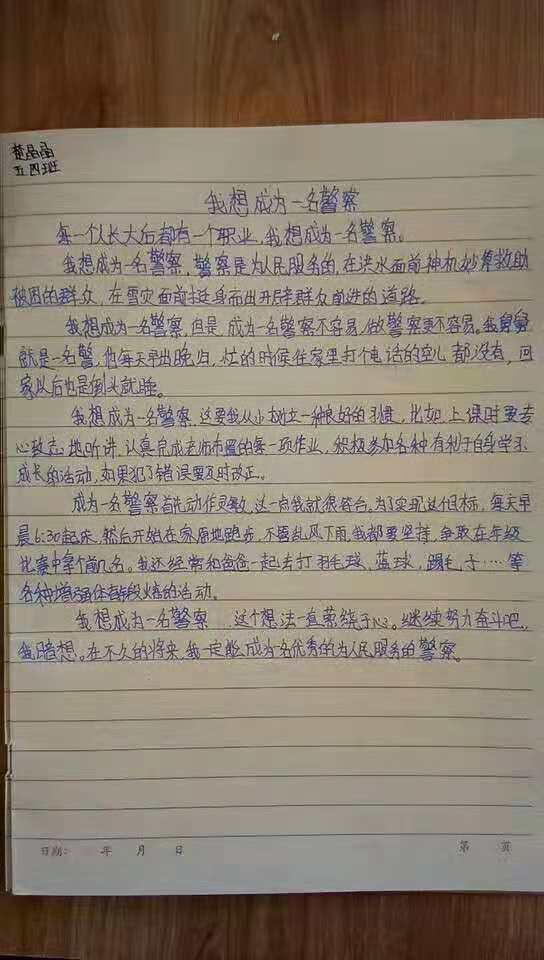 楚晶晶
五四班
我想成为一名警察
每一个人长大后都有一个职业,我想成为一名警察。
我想成为一名警察,警察是为人民服务的,在洪水面前神机妙算救助
被困的群众,在雪灾面前挺身而出开辟群众前进的道路。
我想成为一名警察,但是,成为一名警察不容易,做警察更不容易。我舅舅
就是一名警,他每天早出晚归,忙的时候往家里打个电话的空儿都没有,回
家以后也是倒头就睡。
我想成为一名警察,这要我从小树立一种良好的习惯,比如,上课时要专
心致志地听讲,认真完成老师布置的每一项作业,积极参加各种有利于自身学习
成长的活动,如果犯了错误要及时改正。
成为一名警察首先动作灵敏,这一点我就很符合,为了实现这个目标,每天早
晨6:30起床,然后开始在家原地跑步,不管乱风下雨,我都要坚持,争取在年级
比赛中拿个前几名。我还经常和爸爸一起去打羽毛球,蓝球,踢毛子……等
各种增强体育锻炼的活动。
我想成为一名警察……这个想法一直萦绕于心。继续努力奋斗吧,
我暗想。在不久的将来,我一定能成为名优秀的为人民服务的警察。
日期: 年 月 日
第 页